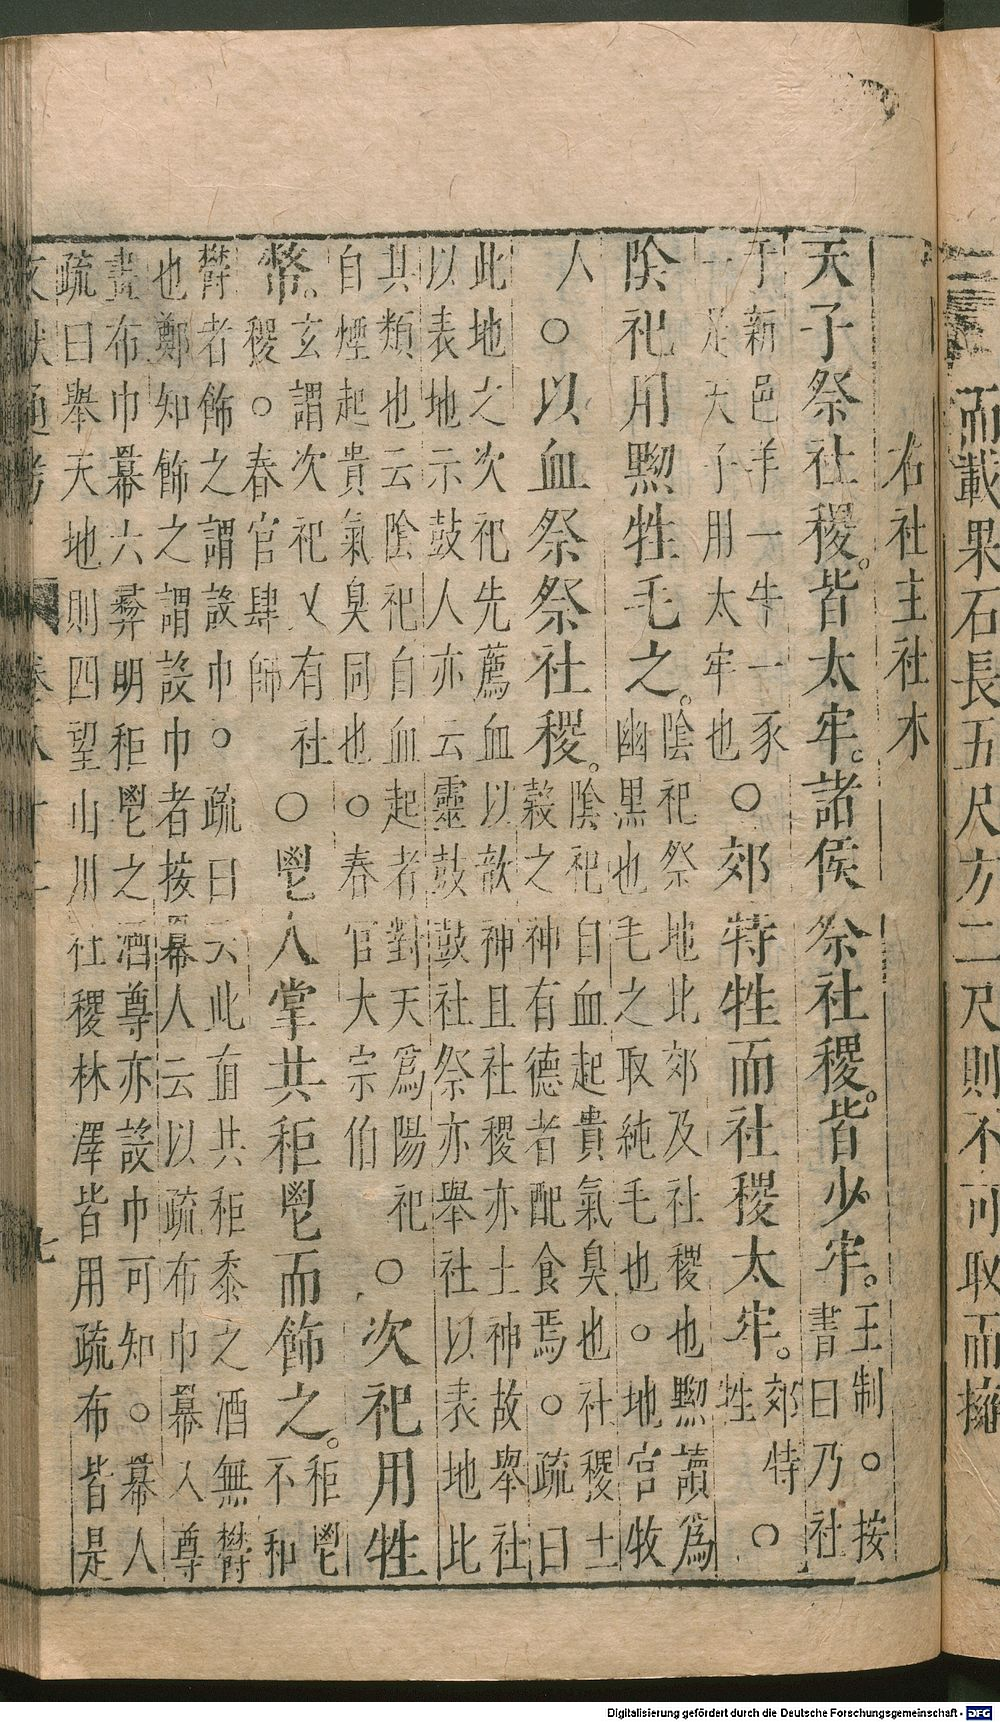 而載果石長五尺方二尺則不可取而擁
右社主社木
天子祭社稷皆太牢諸侯祭社稷皆少牢王制○按
書曰乃社
于新邑羊一牛一豕
一是天子用太牢也
○郊特牲而社稷太牢郊特
牲○
陰祀用黝牲毛之陰祀祭地北郊及社稷也黝讀爲
幽黒也毛之取純毛也○地官牧
人○以血祭祭社稷陰祀自血起貴氣臭也社稷土
穀之神有德者配食焉○疏曰
此地之次祀先薦血以歆神且社稷亦土神故舉社
以表地示鼓人亦云靈鼓鼓社祭亦舉社以表地此
其類也云陰祀自血起者對天爲陽祀
自煙起貴氣臭同也○春官大宗伯
○次祀用牲
幣玄謂次祀又有社
稷○春官肆師
○鬯人掌共秬鬯而飾之秬鬯
不和
鬱者飾之謂設巾○疏曰云此直共秬黍之酒無鬱
也鄭知飾之謂設巾者按冪人云以疏布巾冪八尊
畫布巾冪六彝明秬鬯之酒尊亦設巾可知○冪人
疏曰舉天地則四望山川社稷林澤皆用疏布皆是
文獻通考 卷八十二 七